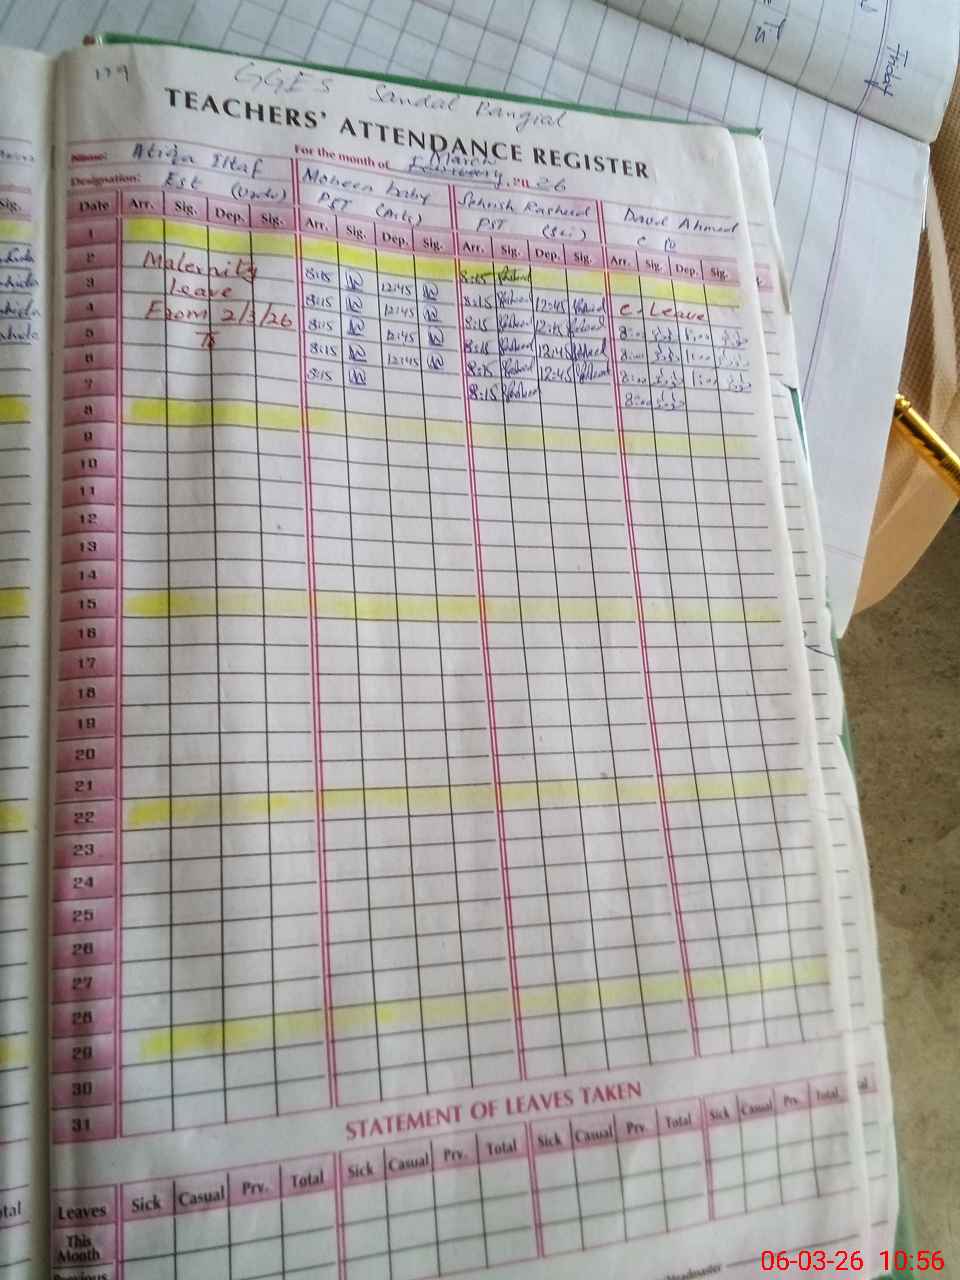 179
GGES Sandal Bangial
TEACHERS' ATTENDANCE REGISTER
Name: Atiqa Iltaf For the month of March February, 2026
Designation: Est (Urdu) Moheen baby Sehrish Rasheed Daud Ahmed
PST (Arts) PST (Sci)
Date Arr. Sig. Dep. Sig. Arr. Sig. Dep. Sig. Arr. Sig. Dep. Sig. Arr. Sig. Dep. Sig.
1
2 Maternity 8:15 12:45 8:15
3 Leave 8:15 12:45 8:15 12:45 C. Leave
4 From 2/3/26 8:15 12:45 8:15 12:15 8:00 1:00
5 To 8:15 12:45 8:15 12:45 8:00 1:00
6 8:15 8:15 12:45 8:00 1:00
7 8:15 8:00
8
9
10
11
12
13
14
15
16
17
18
19
20
21
22
23
24
25
26
27
28
29
30
31
STATEMENT OF LEAVES TAKEN
Leaves Sick Casual Prv. Total Sick Casual Prv. Total Sick Casual Prv. Total Sick Casual Prv. Total
This
Month
Previous
Headmaster
06-03-26 10:56